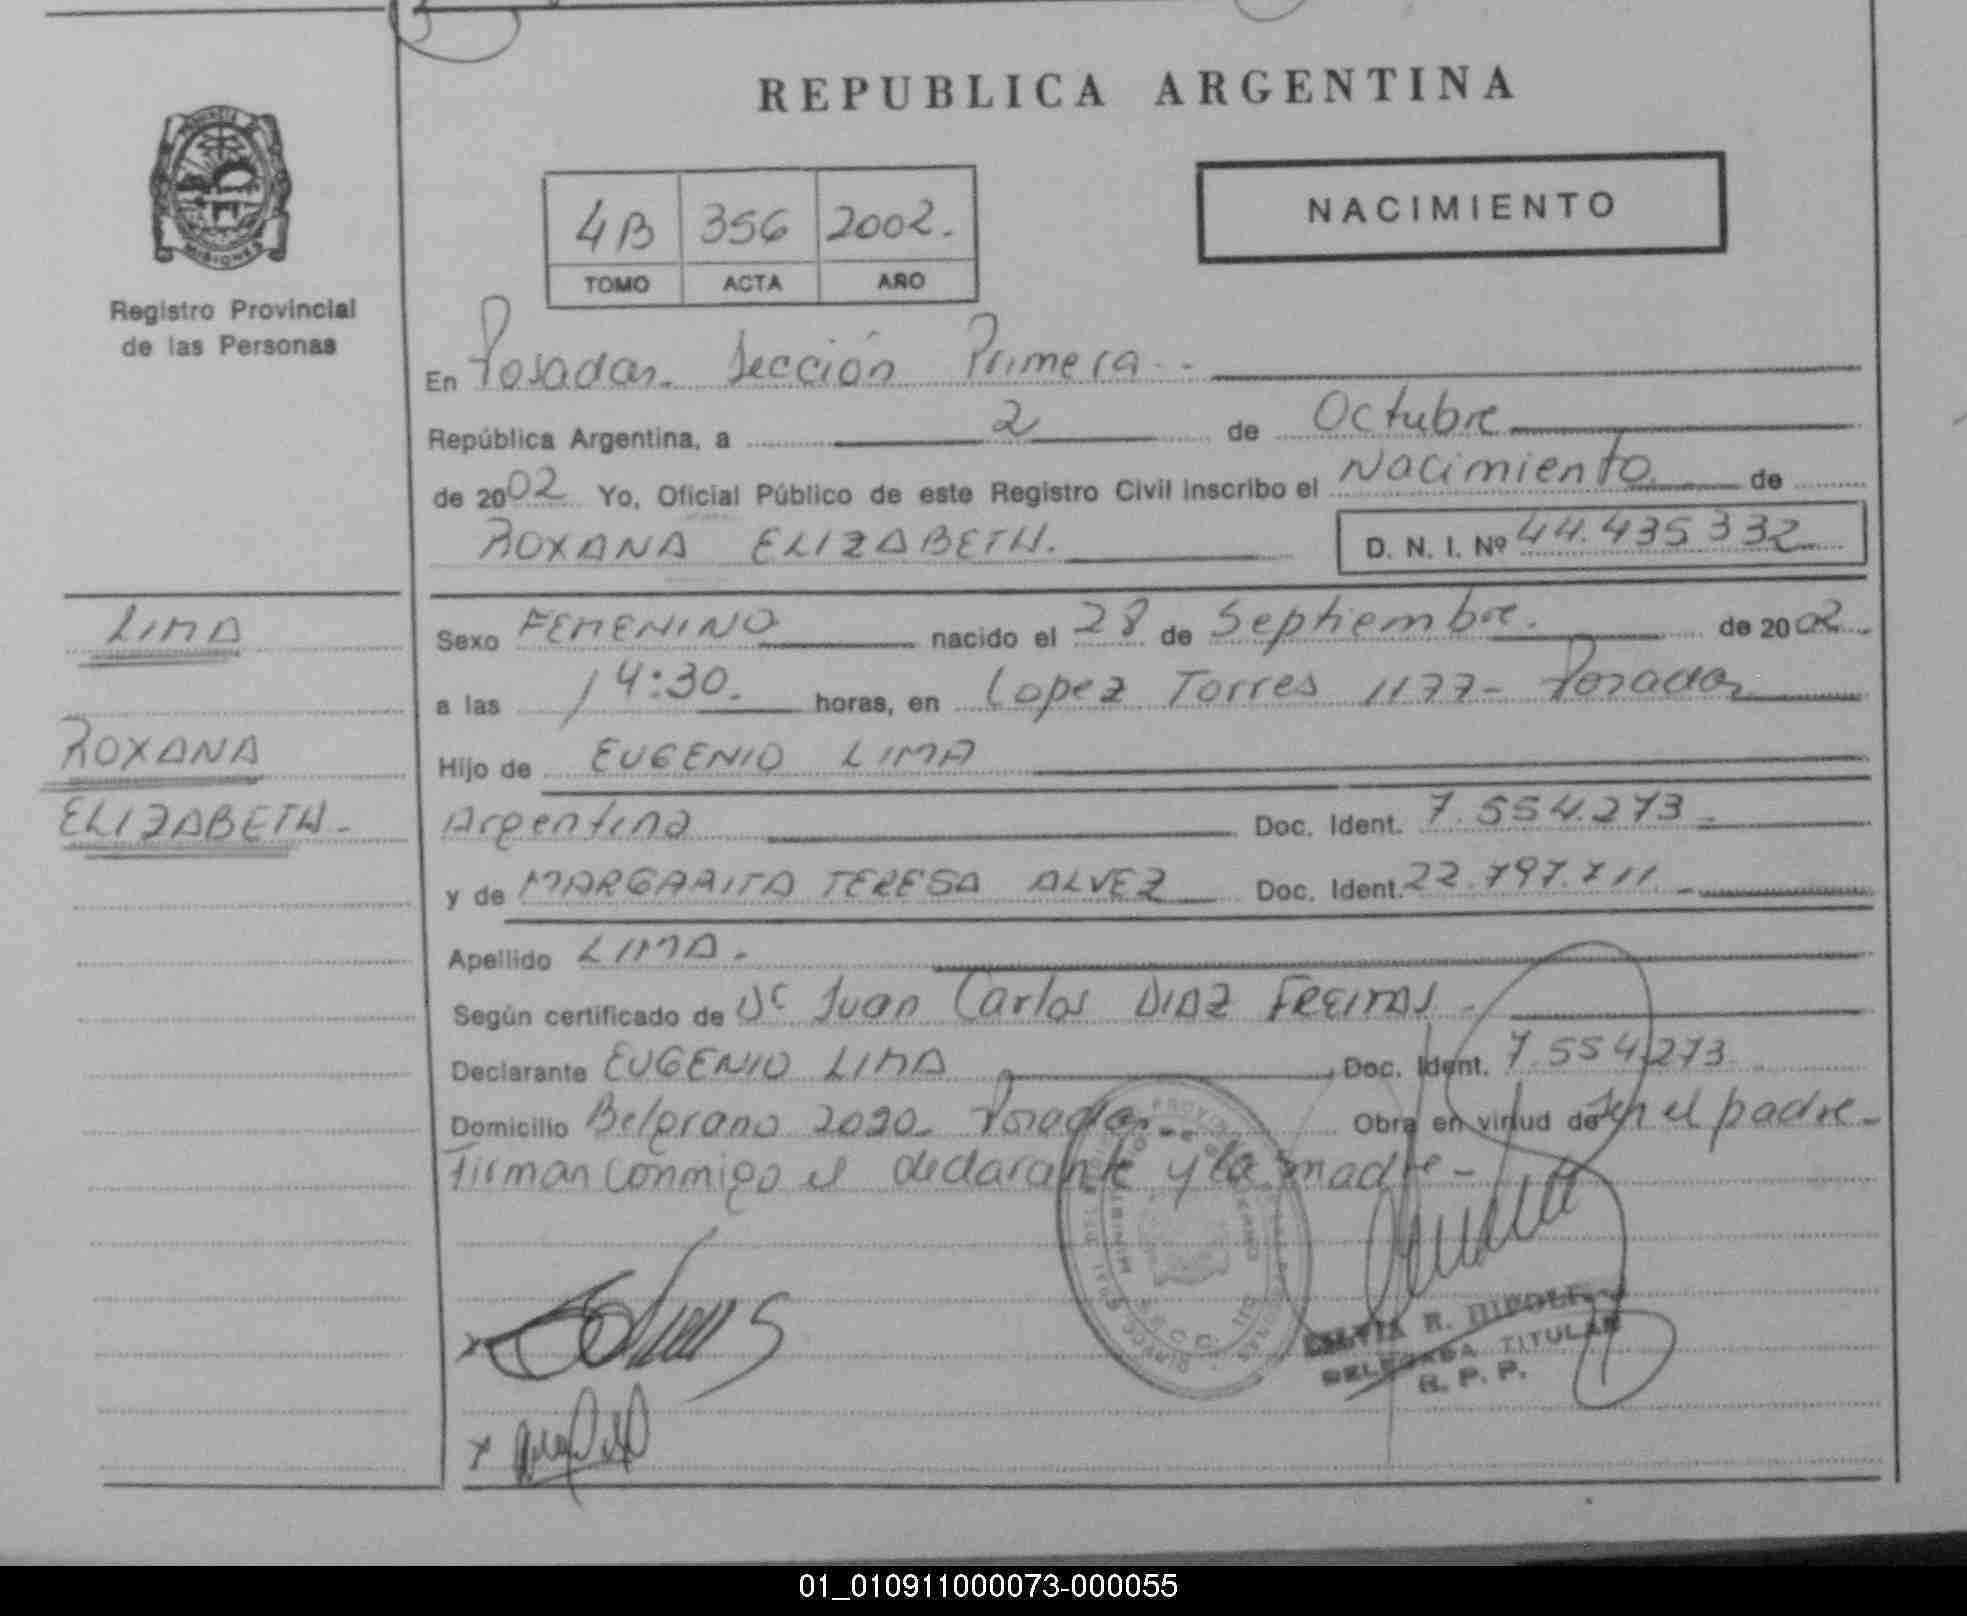 REPUBLICA ARGENTINA
PROVINCIA DE
MISIONES
Registro Provincial
de las Personas
4B 356 2002.
TOMO ACTA AÑO
NACIMIENTO
En Posadas. Sección Primera.-
República Argentina, a 2 de Octubre
de 2002 Yo, Oficial Público de este Registro Civil inscribo el Nacimiento de
ROXANA ELIZABETH. D. N. I. Nº 44.435332
LIMA
ROXANA
ELIZABETH.-
Sexo FEMENINO nacido el 28 de Septiembre. de 2002.
a las 14:30. horas, en Lopez Torres 1177- Posadas
Hijo de EUGENIO LIMA
Argentina Doc. Ident. 7.554.273
y de MARGARITA TERESA ALVEZ Doc. Ident. 22.797.711.-
Apellido LIMA.
Según certificado de Dr Juan Carlos DIAZ FREITAS.
Declarante EUGENIO LIMA Doc. Ident. 7.554.273.
Domicilio Belgrano 2020. Posadas.- Obra en virtud de ser el padre-
Firman conmigo el declarante y la madre-
R.
DELEGADA TITULAR
R. P. P.
01_010911000073-000055